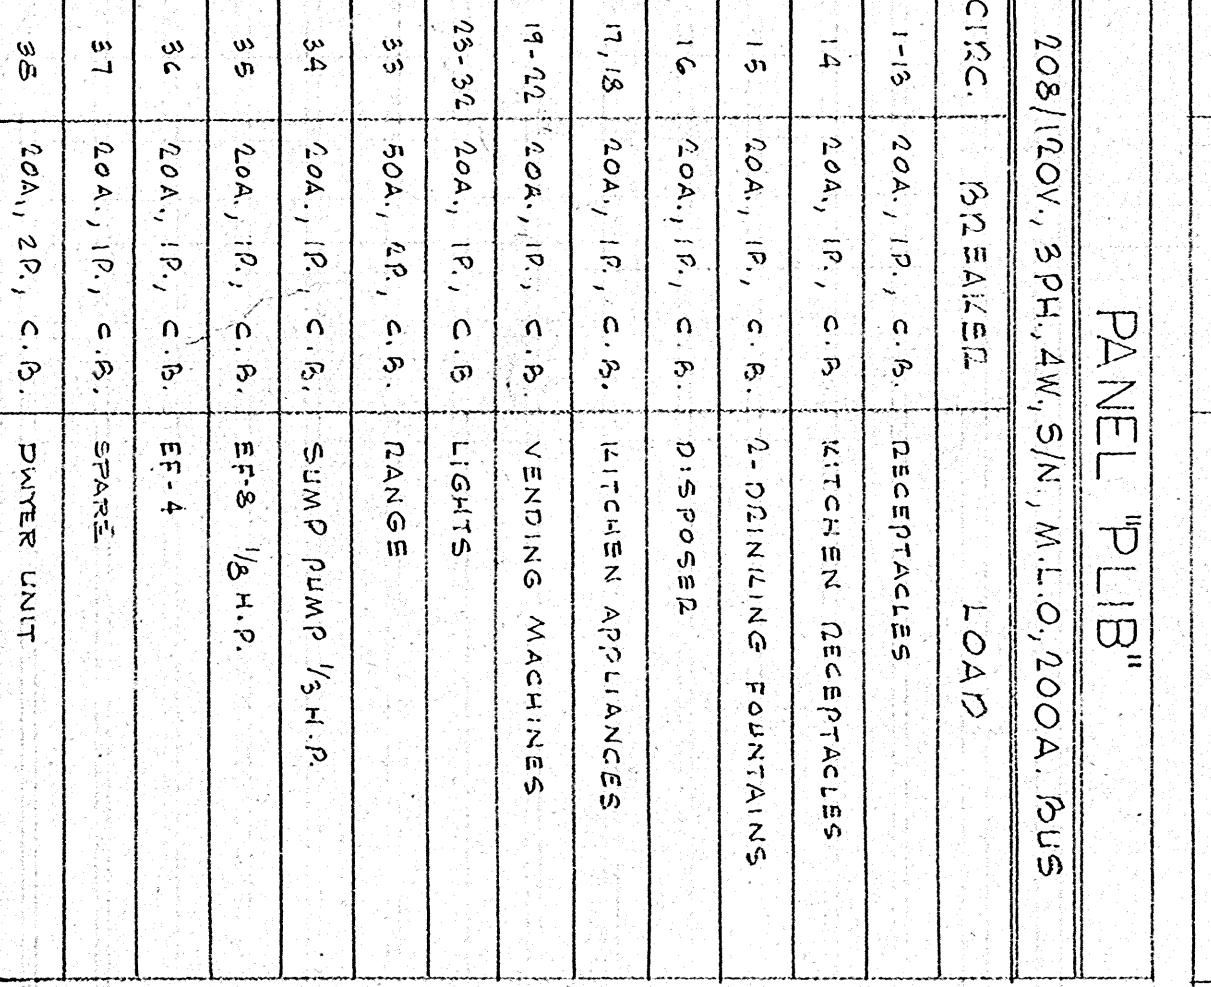 PANEL "PLIB"
208/120V., 3PH., 4W., S/N, M.L.O., 200A. BUS
CIRC. BREAKER LOAD
1-13 20A., 1P., C.B. RECEPTACLES
14 20A., 1P., C.B. KITCHEN RECEPTACLES
15 20A., 1P., C.B. 2-DRINKING FOUNTAINS
16 20A., 1P., C.B. DISPOSER
17,18 20A., 1P., C.B. KITCHEN APPLIANCES
19-22 20A., 1P., C.B. VENDING MACHINES
23-32 20A., 1P., C.B LIGHTS
33 50A., 2P., C.B. RANGE
34 20A., 1P., C.B. SUMP PUMP 1/3 H.P.
35 20A., 1P., C.B. EF-8 1/8 H.P.
36 20A., 1P., C.B. EF-4
37 20A., 1P., C.B. SPARE
38 20A., 2P., C.B. DWYER UNIT